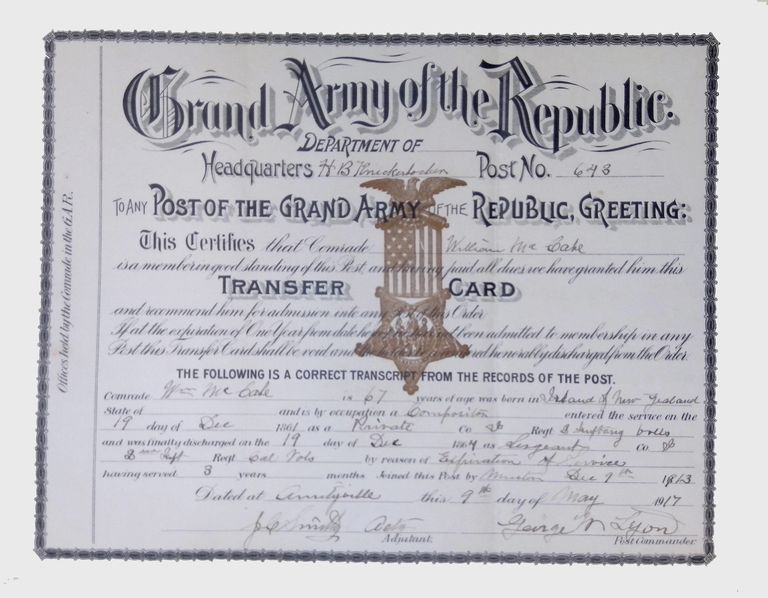 Grand Army of the Republic.
DEPARTMENT OF
Headquarters H B Knickerbocker Post No. 643
TO ANY POST OF THE GRAND ARMY OF THE REPUBLIC, GREETING:
This Certifies that Comrade William Mc Cabe
is a member in good standing of this Post, and having paid all dues we have granted him this
TRANSFER CARD
and recommend him for admission into any Post of this Order.
If at the expiration of One Year from date he has not been admitted to membership in any
Post this Transfer Card shall be void and honorably discharged from the Order.
THE FOLLOWING IS A CORRECT TRANSCRIPT FROM THE RECORDS OF THE POST.
Comrade Wm Mc Cabe is 67 years of age was born in Island of New Zealand
State of and is by occupation a Compositor entered the service on the
19 day of Dec 1861 as a Private Co Regt 2 Infantry
and was finally discharged on the 19 day of Dec 1864 as Sergeant Co
Regt Cal Vols by reason of Expiration of Service
having served 3 years months Joined this Post by Muster Dec 9th 1913
Dated at Amityville this 9th day of May 1917
J C Smith Actg George W Lyon
Adjutant. Post Commander.
Offices held by the Comrade in the G.A.R.